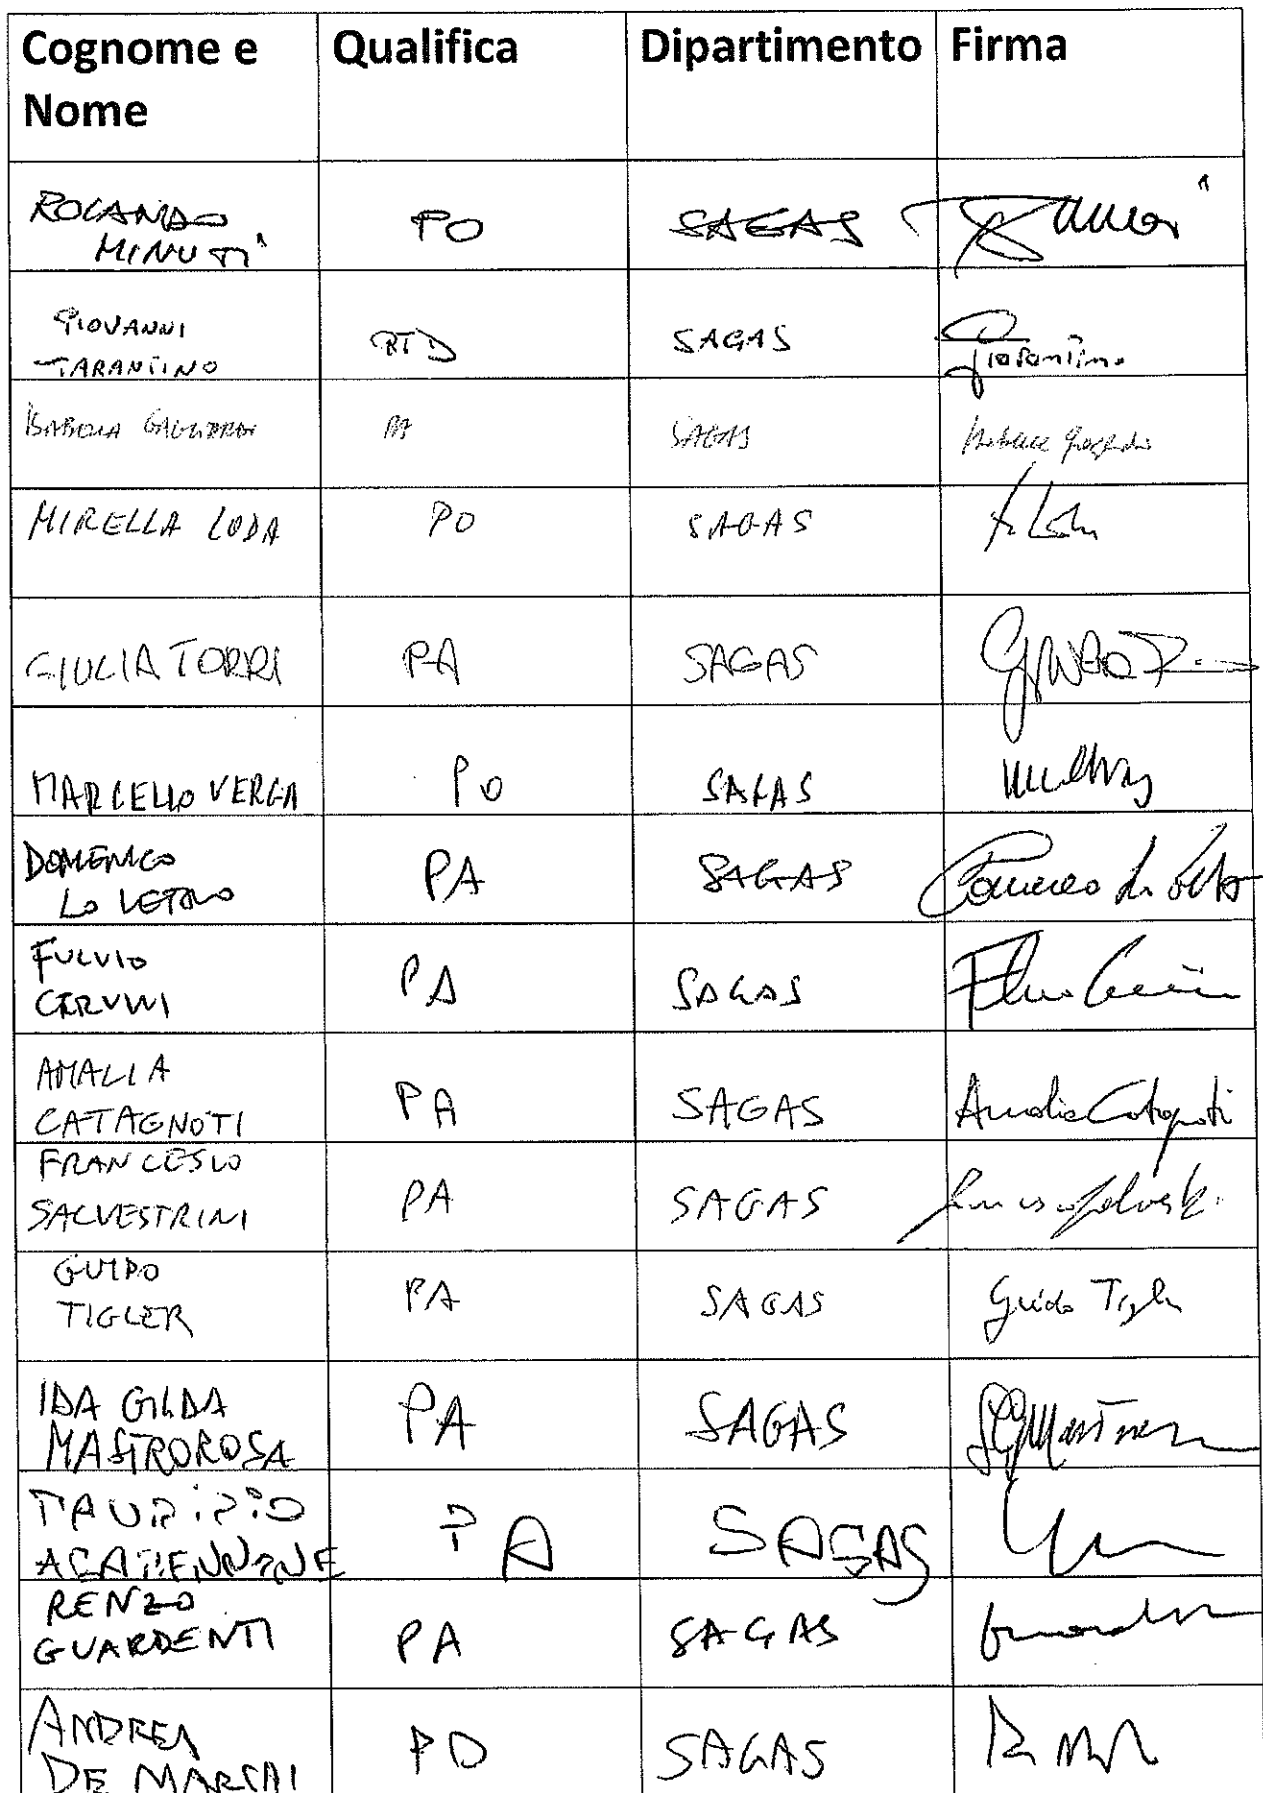 Cognome e Nome Qualifica Dipartimento Firma
ROLANDO MINUTI PO SAGAS
GIOVANNI TARANTINO RTD SAGAS
ISABELLA GAGLIARDI PA SAGAS
MIRELLA LODA PO SAGAS
GIULIA TORRI PA SAGAS
MARCELLO VERGA PO SAGAS
DOMENICO LO VETRO PA SAGAS
FULVIO CERVINI PA SAGAS
AMALIA CATAGNOTI PA SAGAS Amalia Catagnoti
FRANCESCO SALVESTRINI PA SAGAS
GUIDO TIGLER PA SAGAS Guido Tigler
IDA GILDA MASTROROSA PA SAGAS
PA SAGAS
RENZO GUARDENTI PA SAGAS
ANDREA DE MARCHI PO SAGAS